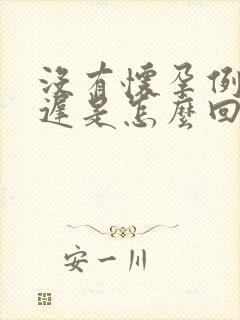 沒有懷孕例
遲是怎麼回
安一川